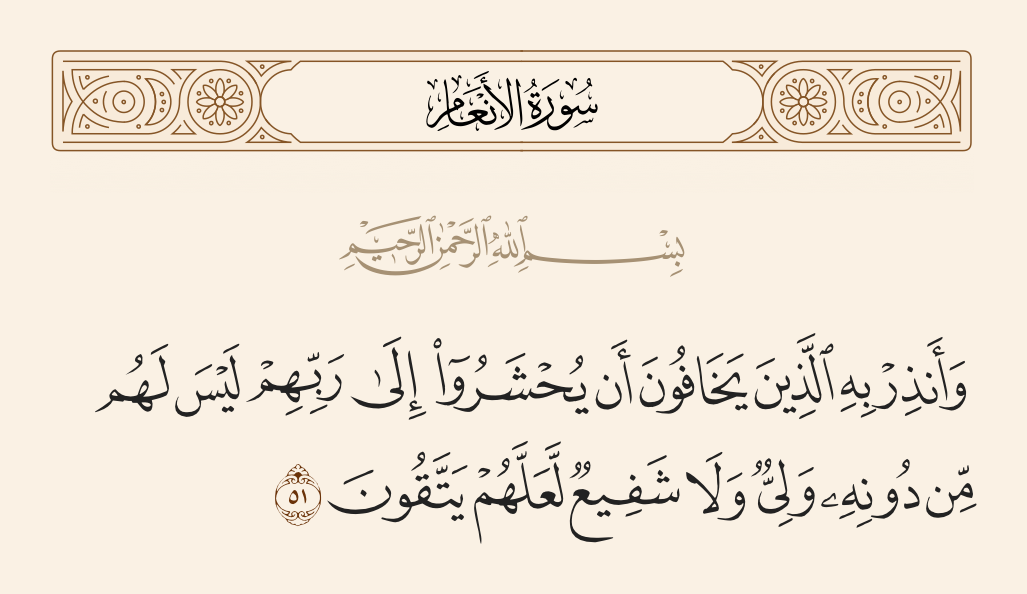 سُورَةُ الأَنْعَامِ
بِسْمِ ٱللَّهِ ٱلرَّحْمَٰنِ ٱلرَّحِيمِ
وَأَنذِرْ بِهِ ٱلَّذِينَ يَخَافُونَ أَن يُحْشَرُوٓا۟ إِلَىٰ رَبِّهِمْ لَيْسَ لَهُم
مِّن دُونِهِۦ وَلِىٌّ وَلَا شَفِيعٌ لَّعَلَّهُمْ يَتَّقُونَ ٥١